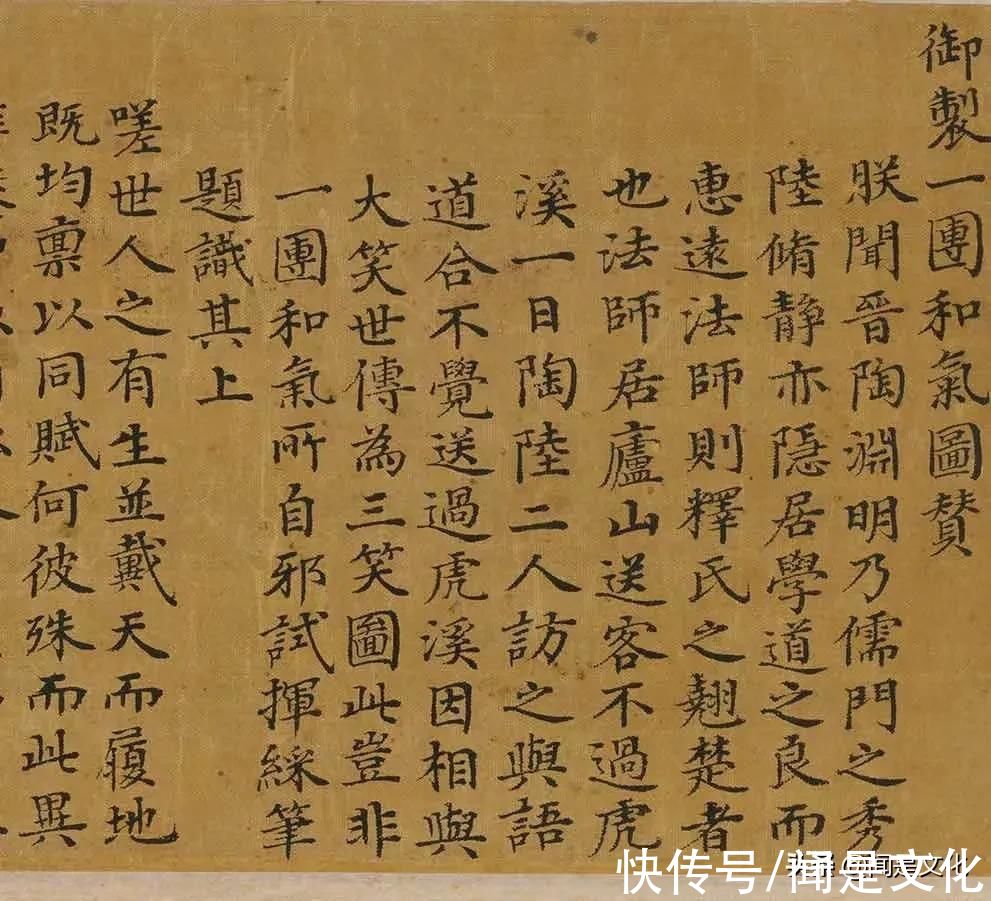 御製一團和氣圖贊
朕聞晉陶淵明乃儒門之秀
陸脩靜亦隱居學道之良而
惠遠法師則釋氏之翹楚者
也法師居廬山送客不過虎
溪一日陶陸二人訪之與語
道合不覺送過虎溪因相與
大笑世傳為三笑圖此豈非
一團和氣所自邪試揮綵筆
題識其上
嗟世人之有生並戴天而履地
既均稟以同賦何彼殊而此異
快传号/闻是文化